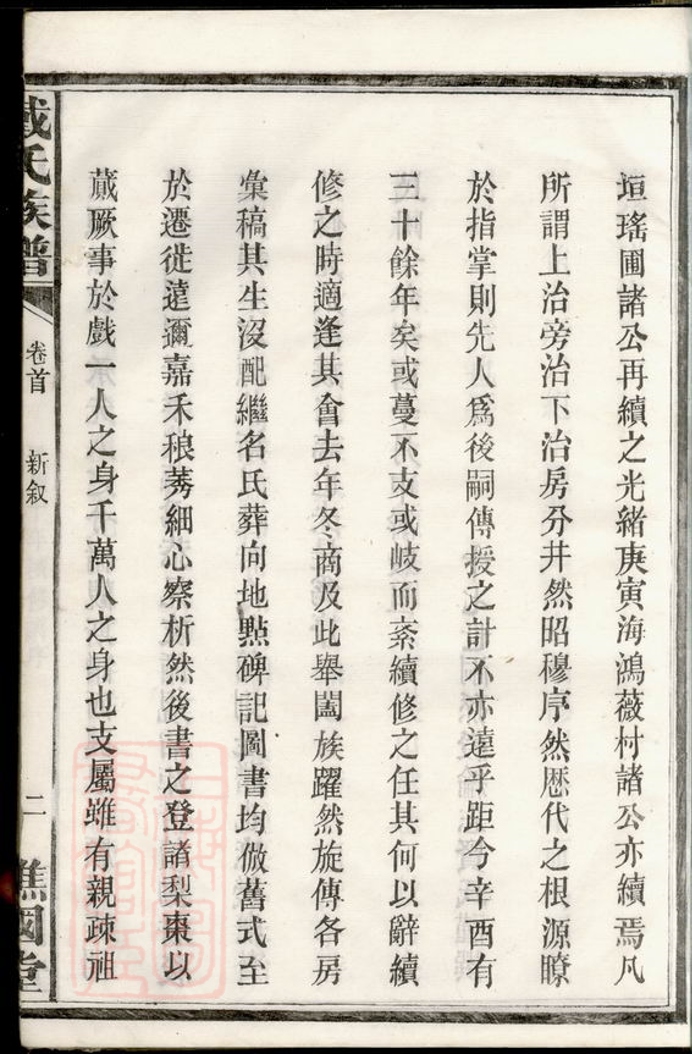 垣瑤圃諸公再續之光緒庚寅海鴻薇村諸公亦續焉凡
所謂上治旁治下治房分井然昭穆序然歷代之根源瞭
於指掌則先人爲後嗣傳授之計不亦遠乎距今辛酉有
三十餘年矣或蔓不支或岐而紊續修之任其何以辭續
修之時適逢其會去年冬商及此舉闔族躍然旋傳各房
彙稿其生沒配繼名氏葬向地點碑記圖書均倣舊式至
於遷徙遠邇嘉禾稂莠細心察析然後書之登諸梨棗以
蕆厥事於戲一人之身千萬人之身也支屬雖有親疎祖
戴氏族譜
卷首
新叙
二
譙國堂